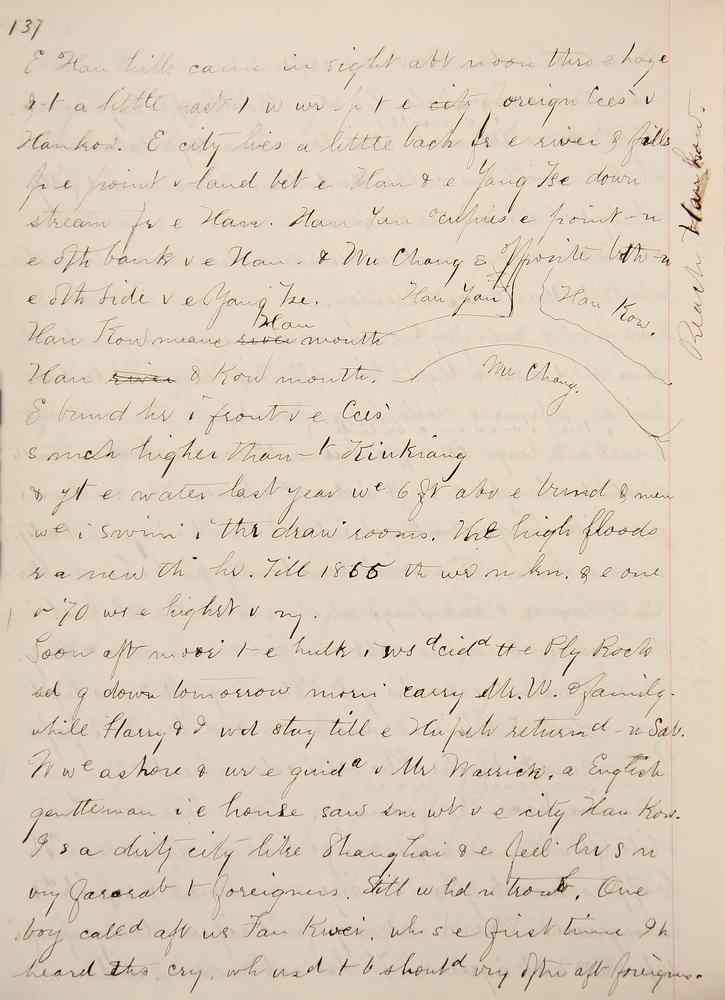 137
E Han hills came in sight abt noon thro e haze
& t a little east t w wr up t e city foreign Cces' v
Hankow. E city lies a little back fr e river & fills
up e point v land bet e Han & e Yang Tse down
stream fr e Han. Han Yan occupies e point - n
e oth bank v e Han. & Wu Chang s opposite both - n
e oth side v e Yang Tse. Han Yan Han Kow.
Han Kow means river Han mouth
Han river & Kow mouth. Wu Chang.
E bund hr i front v e Cces'
s much higher than - t Kinkiang
& yt e water last year we 6 ft abv e bund & men
we i swim i thr draw rooms. The high floods
r a new thi hr. Till 1866 th wr n kn. & e one
v '70 ws e highest v ny.
Soon aft moori t e hulk i ws dcidd tt e Ply Rock
sd g down tomorrow morni carry Mr. W. & family.
while Harry & I wd stay till e Hupeh returnd - n Sat.
W we ashore & ur e guidа v Mr Warrick, a English
gentleman i e house saw sm wt v e city Han Kow.
I s a dirty city like Shanghai & e feel hr s n
vry favorab t foreigners. Still w hd n troub. One
boy calld aft us Fan Kwei, wh s e first time I h
heard ths cry, wh usd t b shoutd vry oftn aft foreigns.
Reach Hankow.